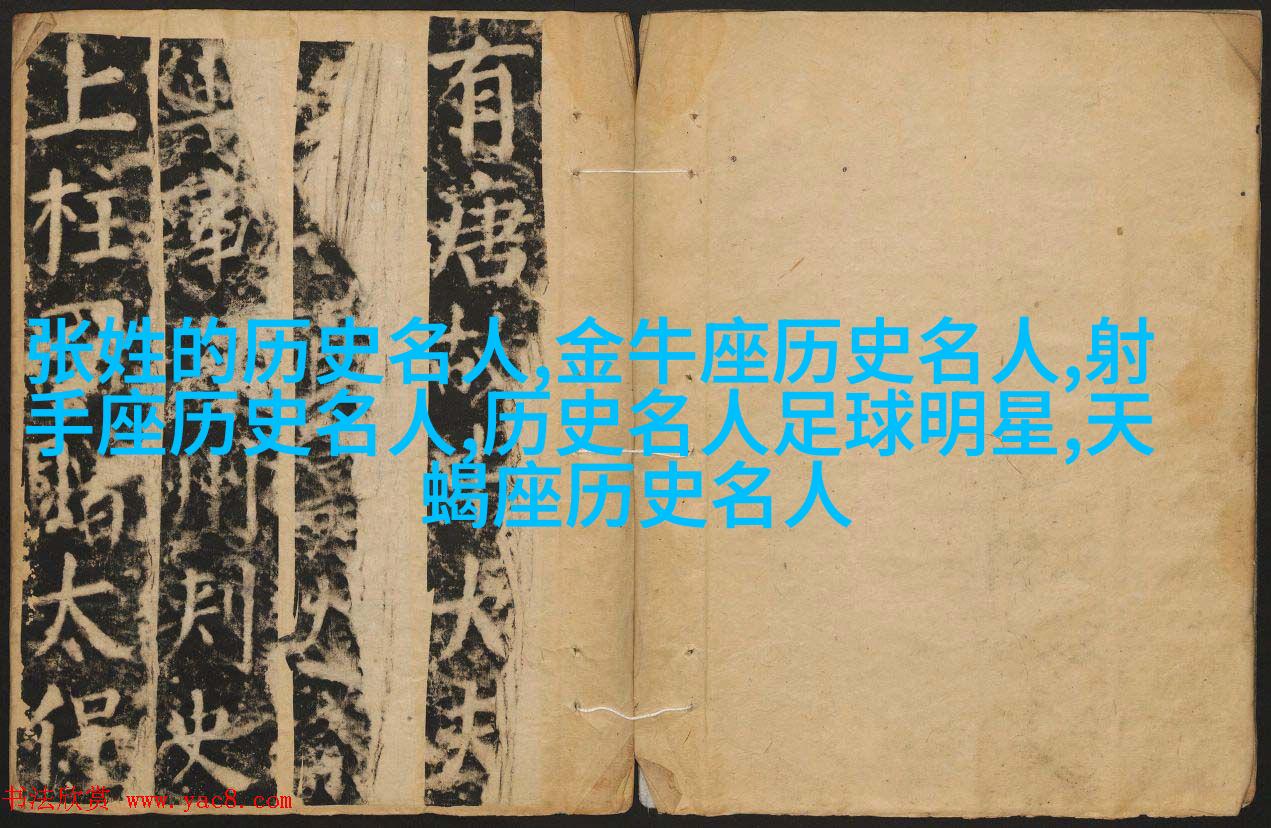 有唐故
大夫
軍
州刺史
上柱國
太保
张姓的历史名人,金牛座历史名人,射
手座历史名人,历史名人足球明星,天
蝎座历史名人
书法欣赏 www.yac8.com